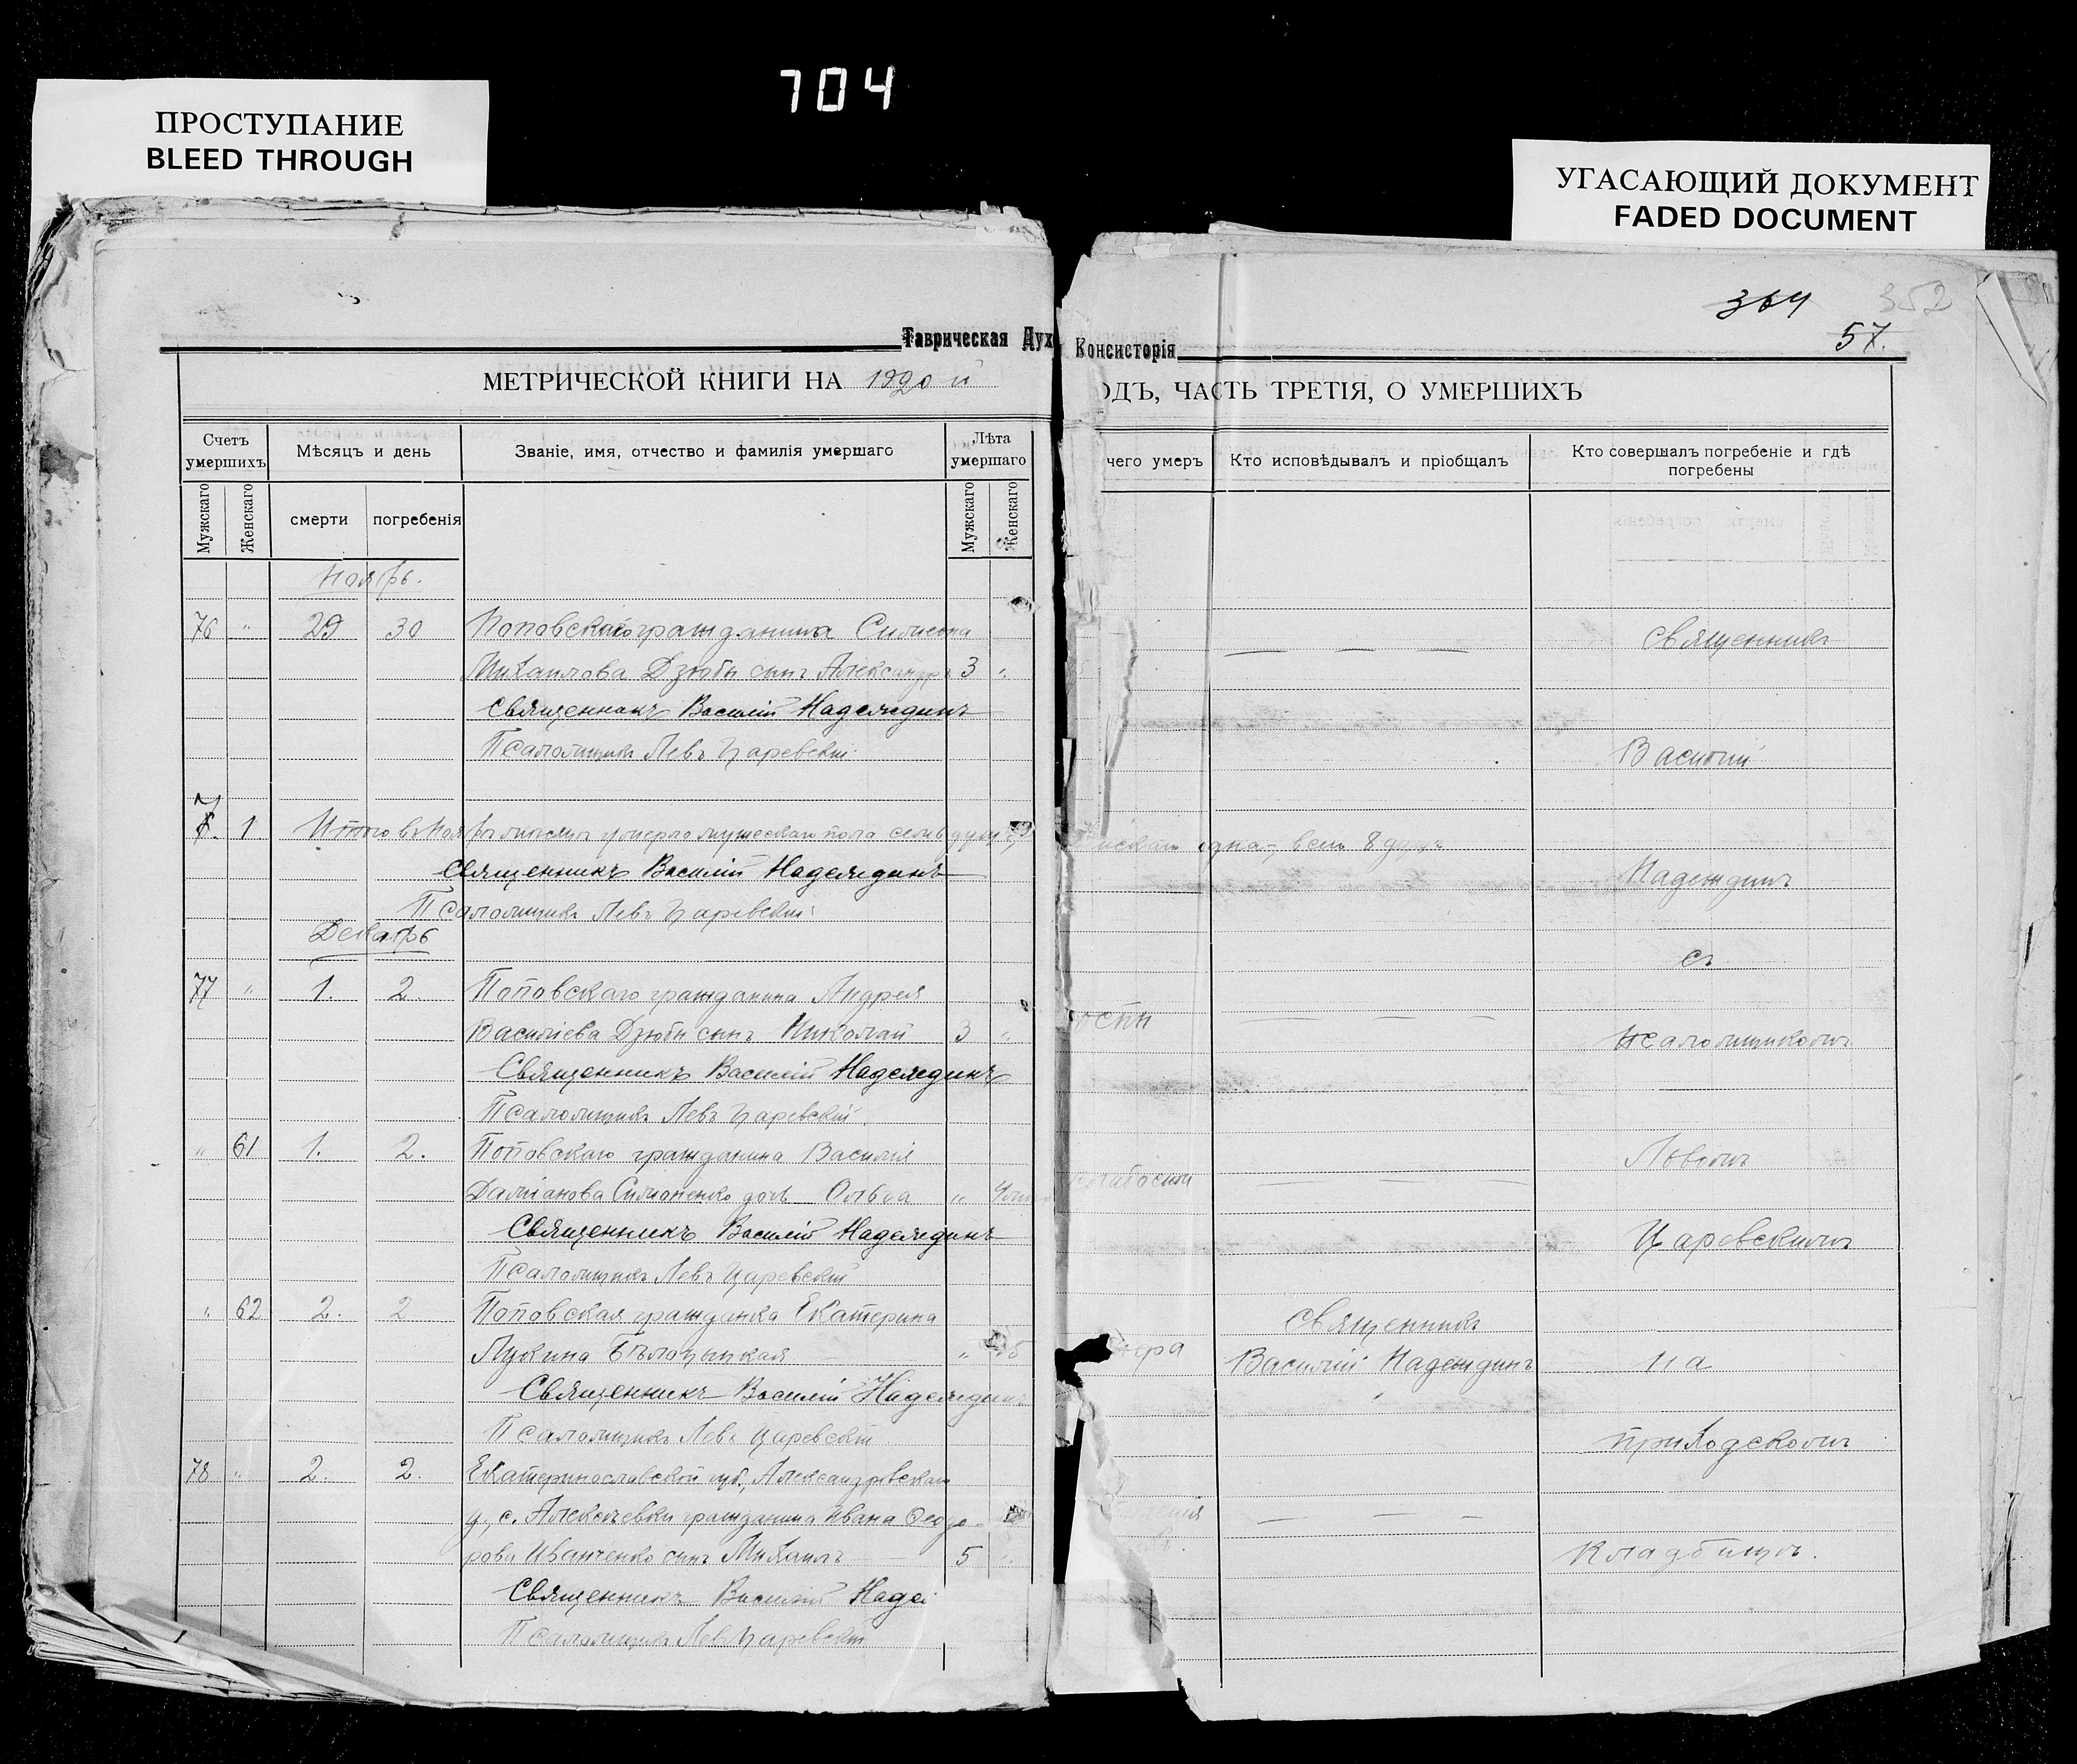 704
ПРОСТУПАНИЕ
BLEED THROUGH
УГАСАЮЩИЙ ДОКУМЕНТ
FADED DOCUMENT
364 352
57.
Таврическая Дух Консисторія
МЕТРИЧЕСКОЙ КНИГИ НА 1920 й
ОДЪ, ЧАСТЬ ТРЕТІЯ, О УМЕРШИХЪ
Счетъ умершихъ
Мѣсяцъ и день
Званіе, имя, отчество и фамилія умершаго
Лѣта умершаго
чего умеръ
Кто исповѣдывалъ и пріобщалъ
Кто совершалъ погребеніе и гдѣ погребены
Мужскаго
Женскаго
смерти
погребенія
Мужскаго
Женскаго
Ноябрь.
76 " 29 30 Поповскаго гражданина Симеона
Михаилова Дзюбы сынъ Александръ 3 "
Священникъ Василій Надеждинъ
Псаломщикъ Левъ Царевскій
7 1 Итого въ Ноябрѣ мѣсяцѣ умерло мужескаго пола семь душъ, одна, всего 8 душъ
Священникъ Василій Надеждинъ
Псаломщикъ Левъ Царевскій
Декабрь
77 " 1. 2. Поповскаго гражданина Андрея
Василіева Дзюбы сынъ Николай 3 " оспы
Священникъ Василій Надеждинъ
Псаломщикъ Левъ Царевскій
" 61 1. 2. Поповскаго гражданина Василія
Даміанова Симоненко дочь Ольга "
Священникъ Василій Надеждинъ
Псаломщикъ Левъ Царевскій
" 62 2. 2 Поповская гражданка Екатерина
Лукина Бѣлоцыцкая "
Священникъ Василій Надеждинъ
Псаломщикъ Левъ Царевскій
78 " 2. 2. Екатеринославской губ., Александровскаго
у., с. Алексѣевки гражданина Ивана Ѳеодо-
рова Иванченко сынъ Михаилъ 5 "
Священникъ Василій Наде
Псаломщикъ Левъ Царевскій
Священникъ
Василій Надеждинъ
Священникъ
Василій
Надеждинъ
съ
псаломщикомъ
Львомъ
Царевскимъ
на
приходскомъ
кладбищѣ.